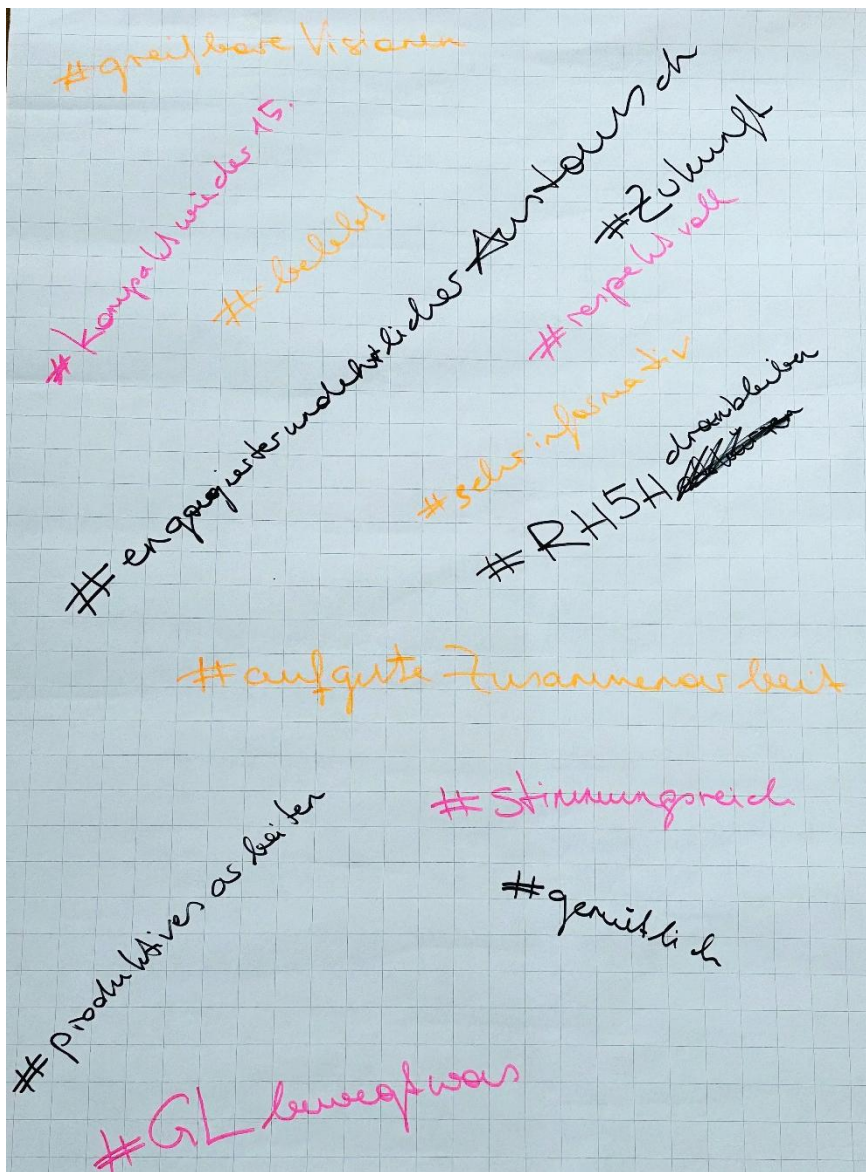 #greifbare Visionen
#kompaktwieder15.
#belebt
#engagierterundehrlicher Austausch
#Zukunft
#respektvoll
#sehrinformativ
#RH5H dranbleiben
#aufgute Zusammenarbeit
#Stimmungsreich
#produktives arbeiten
#gemütlich
#GL bewegtwas